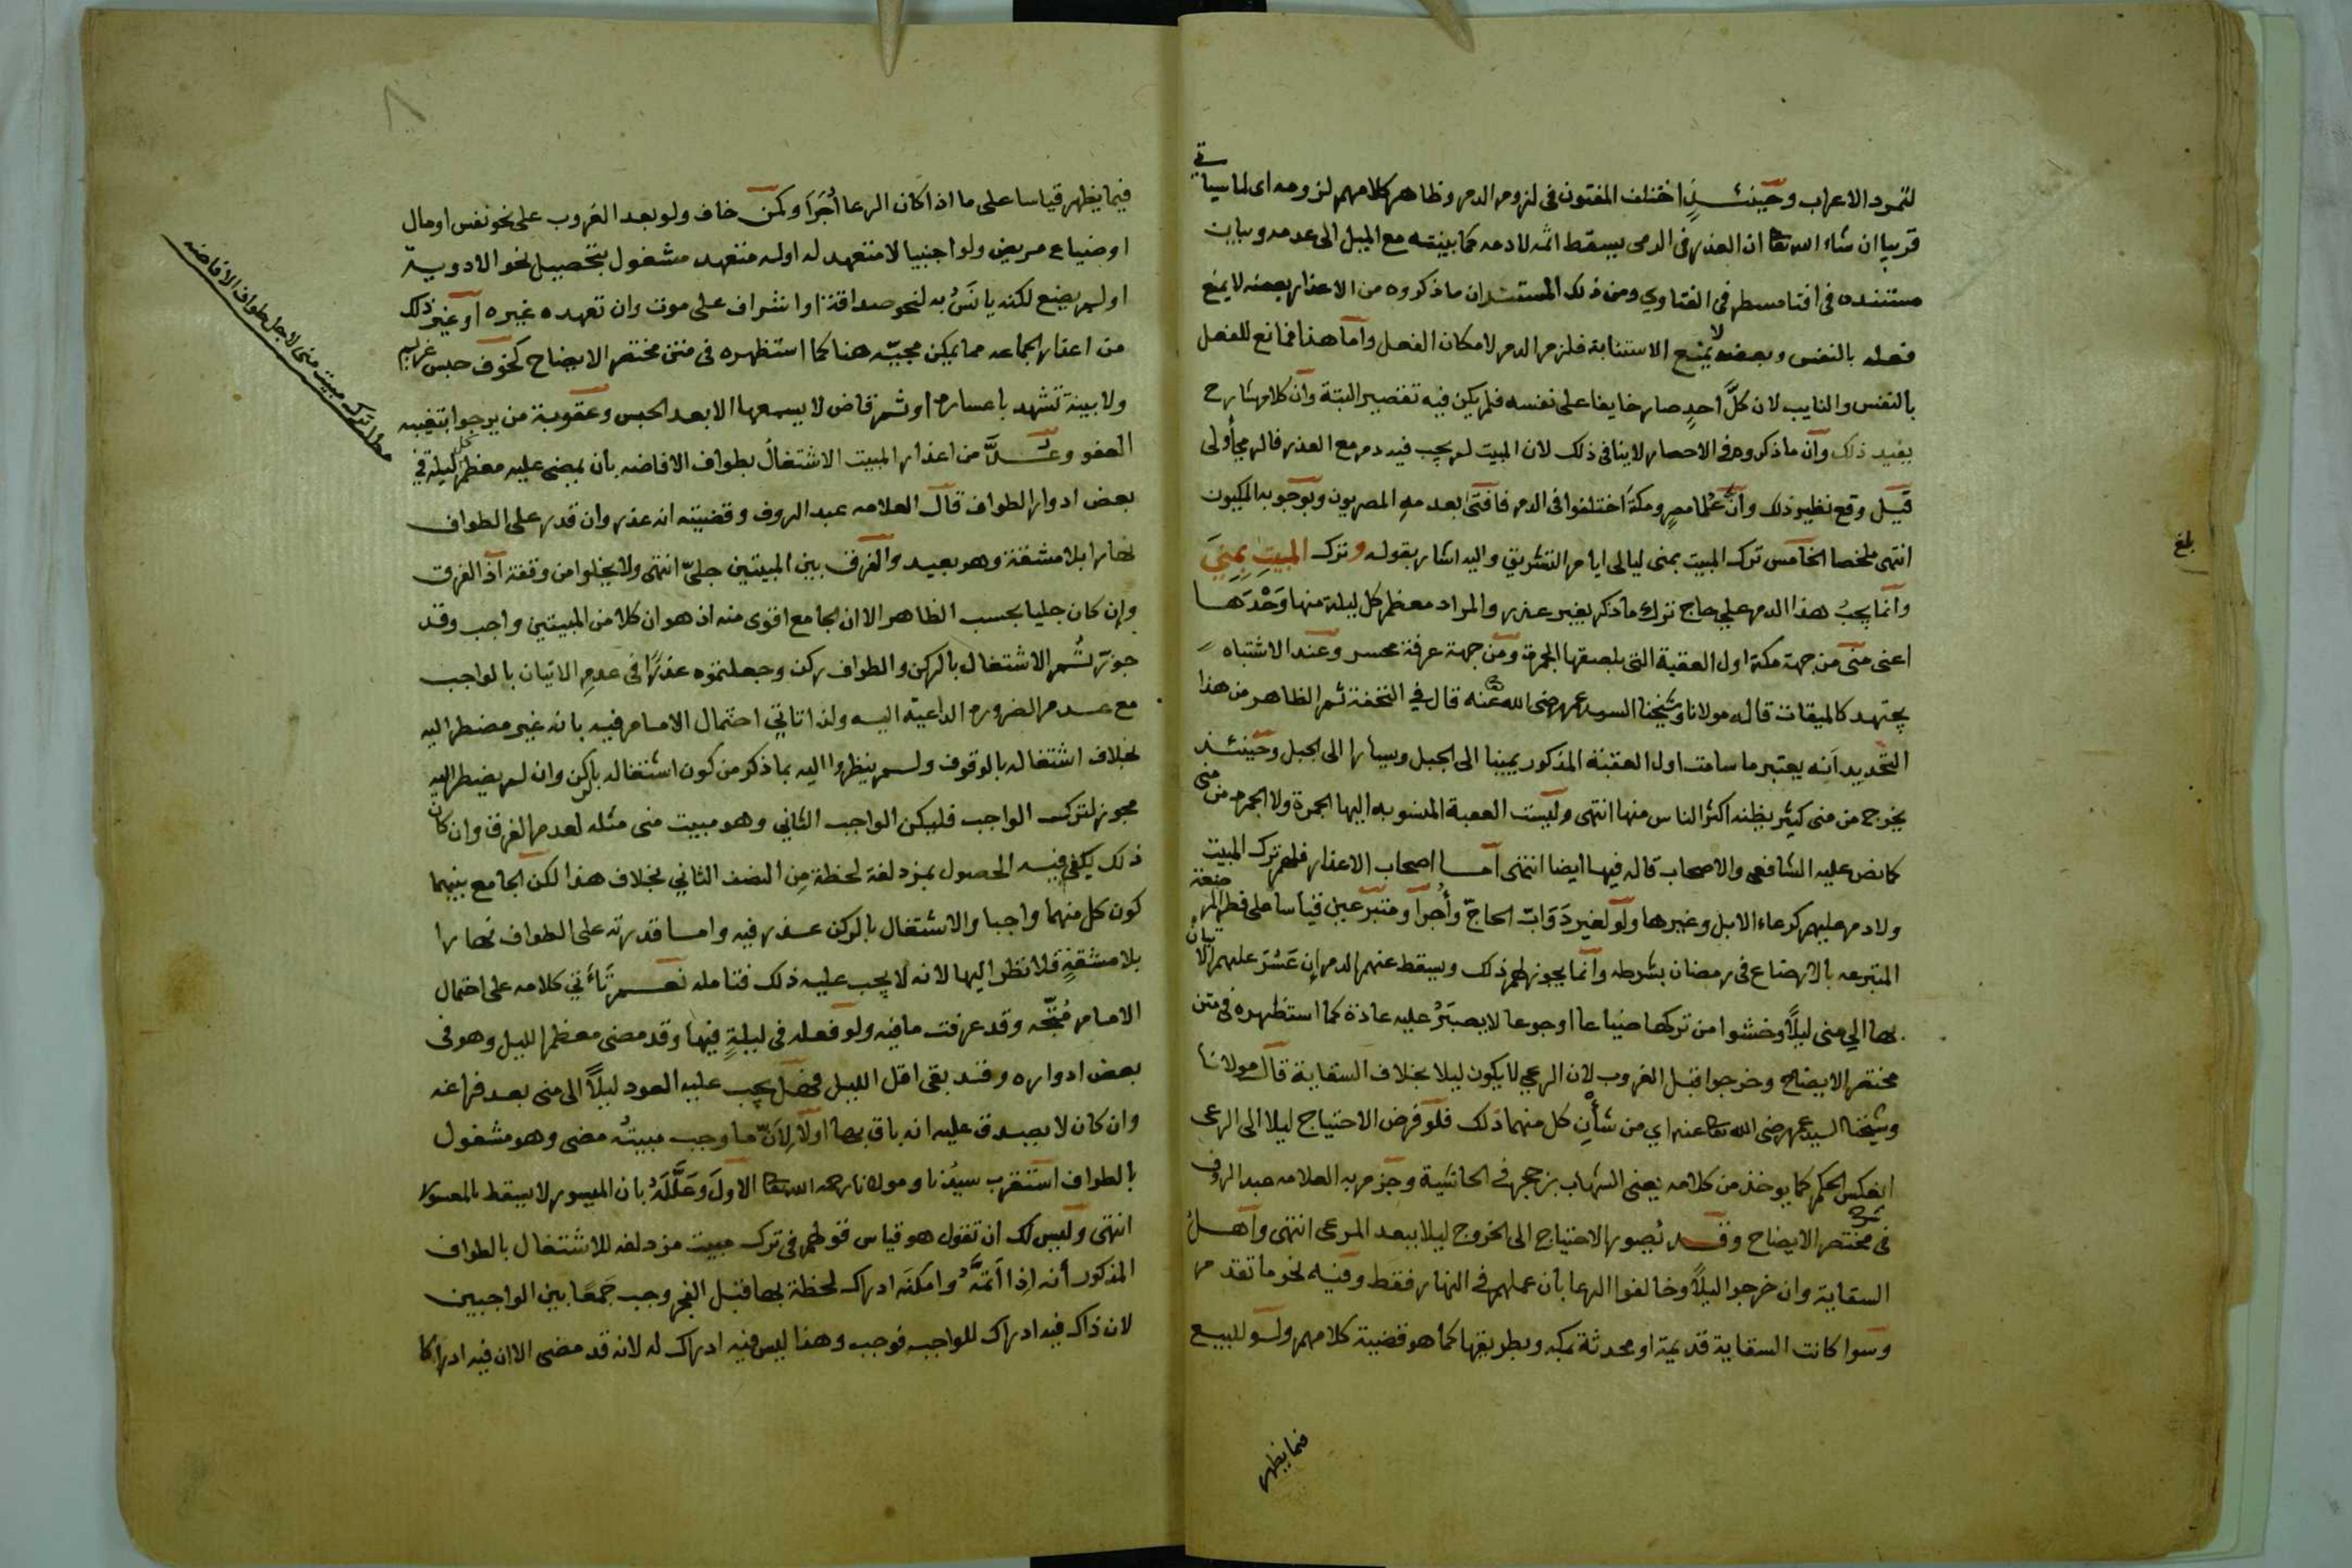 لتمرد الاعراب وحينئذٍ اختلف المفتون فى لزوم الدم وظاهر كلامهم لزومه اى لما سياتي
قريبا ان شاء الله تعا ان العذر فى الرمى يسقط اثمه لا دمه كما بينته مع الميل الى عدمه وبيان
مستنده فى افتا مسطر فى الفتاوي ومن ذلك المستند ان ما ذكروه من الاعذار بعضه لا يمنع
فعله بالنفس وبعضه لا يمنع الاستنابة فلزم الدم لامكان الفعل واما هذا فمانع للفعل
بالنفس والنايب لان كلَّ احدٍ صار خايفا على نفسه فلم يكن فيه تقصير البتة وان كلام شارح
يفيد ذلك وان ما ذكروه فى الاحصار لا ينافى ذلك لان المبيت لم يجب فيه دم مع العذر فالرمي أولى
قيل وقع نظير ذلك وانّ علما مصر ومكة اختلفوا فى الدم فافتى بعدمه المصريون وبوجوبه المكيون
انتهى ملخصا الخامس ترك المبيت بمنى ليالى ايام التشريق واليه اشار بقوله وترك المبيتِ بِمِنىً
وانما يجبُ هذا الدم على حاج ترك ما ذكر بغير عذر والمراد معظم كل ليلة منها وَحْدَها
اعنى منى من جهة مكة اول العقبة التى بلصقها الجمرة ومن جهة عرفة محسر وعند الاشتباه
يجتهد كالميقات قاله مولانا وشيخنا السيد عمر رضى الله تعا عنه قال في التحفة ثم الظاهر من هذا
التحديد انه يعتبر ما سامت اول العقبة المذكور يمينا الى الجبل ويسارا الى الجبل وحينئذ
يخرج من منى كثير يظنه اكثر الناس منها انتهى وليست العقبة المنسوبه اليها الجمرة ولا الجمره من منى
كما نص عليه الشافعى والاصحاب قاله فيها ايضا انتهى اما اصحاب الاعذار فلهم ترك المبيت
ولا دم عليهم كرعاء الابل وغيرها ولو لغير دَوَابّ الحاجّ وأُجرا ومتبرّعين قياسا على فطر المرضعة
المتبرعه بالارضاع فى رمضان بشرطه وانما يجوز لهم ذلك ويسقط عنهم الدم إن عَسُرَ عليهم الاتيانُ
بها الي منى ليلاً وخشوا من تركها ضياعا او جوعا لا يصبَرُ عليه عادة كما استظهره فى متن
مختصر الايضاح وخرجوا قبل الغروب لان الرعي لا يكون ليلا بخلاف السقاية قال مولانا
وشيخنا السيد عمر رضى الله تعا عنه اي من شأنِ كل منهما ذلك فلو فرض الاحتياج ليلا الى الرعى
انعكس الحكم كما يوخذ من كلامه يعنى الشهاب بن حجر فى الحاشية وجزم به العلامه عبد الروف
فى شرح مختصر الايضاح وقد يُصور الاحتياج الى الخروج ليلا ببعد المرعى انتهى واهلُ
السقاية وان خرجوا ليلاً وخالفوا الرعا بان عملهم فى النهار فقط وفيه نحو ما تقدم
وسوا كانت السقاية قديمة او محدثة بمكه وبطريقها كما هو قضية كلامهم ولو للبيع
فيما يظهر
بلغ
فيما يظهر قياسا على ما اذا كان الرعا أُجَرَاَ وكمن خاف ولو بعد الغروب على نحو نفس او مال
او ضياع مريض ولو اجنبيا لا متعهد له اوله متعهد مشغول بتحصيل نحو الادوية
او لم يضع لكنه يانَسُ به لنحو صداقة او اشراف على موت وان تعهده غيره او غير ذلك
من اعذار الجماعه مما يمكن مجيّه هنا كما استظهره فى متن مختصر الايضاح كخوف حبس غريم
ولا بينة تشهد باعساره او ثم قاض لا يسمعها الا بعد الحبس وعقوبة من يرجوا بتغيبه
العفو وعُدَّ من اعذار المبيت الاشتغالُ بطواف الافاضه بان يمضى عليه معظم كل ليلة فى
بعض ادوار الطواف قال العلامه عبد الروف وقضيته انه عذر وان قدر على الطواف
نهارا بلا مشقة وهو بعيد والفرق بين المبيتين جليّ انتهى ولا يخلوا من وقفة اذ الفرق
وان كان جليا بحسب الظاهر الا ان الجامع اقوى منه اذ هو ان كلا من المبيتين واجب وقد
جوّزتُم الاشتغال بالركن والطواف ركن وجعلتموه عذرًا فى عدم الاتيان بالواجب
مع عدم الضروره الداعيه اليه ولذا تاتي احتمال الامام فيه بانه غير مضطر اليه
بخلاف اشتغاله بالوقوف ولم ينظروا اليه بما ذكر من كون اشتغاله بالركن وان لم يضطر اليه
مجوز لترك الواجب فليكن الواجب الثاني وهو مبيت منى مثله لعدم الفرق وان كان
ذلك يكفي فيه الحصول بمزدلفة لحظة مِن النصف الثاني بخلاف هذا لكن الجامع بينهما
كون كل منهما واجبا والاشتغال بالركن عذر فيه واما قدرته على الطواف نهارا
بلا مشقةٍ فلا نظر اليها لانه لا يجب عليه ذلك فتامله نعم تَأتي كلامه على احتمال
الامام مُتَّجّه وقد عرفت ما فيه ولو فعله فى ليلةٍ فيها وقد مضى معظم الليل وهو فى
بعض ادواره وقد بقى اقل الليل فهل يجب عليه العود ليلاً الى منى بعد فراغه
وان كان لا يصدق عليه انه باق بها اولا لِاَنّ ما وجب مبيتُه مضى وهو مشغول
بالطواف استقرب سيدُنا ومولانا رحمه الله تعا الاولَ وعَلَّلَهُ بان الميسور لا يسقط بالمعسور
انتهى وليس لك ان تقول هو قياس قولهم فى ترك مبيت مزدلفه للاشتغال بالطواف
المذكور أنه اِذا اَتمَّهُ وامكنَه ادراك لحظة بها قبل الفجر وجب جَمعًا بين الواجبين
لان ذاك فيه ادراك للواجب فوجب وهذا ليس فيه ادراك له لانه قد مضى الا ان فيه ادراكا
مطلب ترك مبيت منى لاجل طواف الافاضه
٨